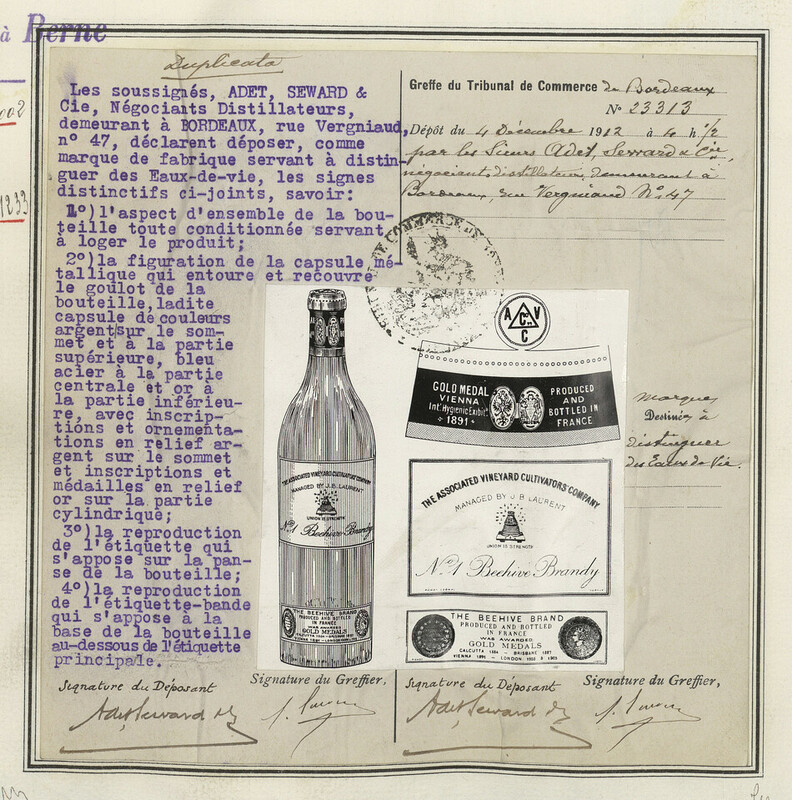 à Berne
Duplicata
Les soussignés, ADET, SEWARD &
Cie, Négociants Distillateurs,
demeurant à BORDEAUX, rue Vergniaud,
n° 47, déclarent déposer, comme
marque de fabrique servant à distin-
guer des Eaux-de-vie, les signes
distinctifs ci-joints, savoir:
1°)l'aspect d'ensemble de la bou-
teille toute conditionnée servant
à loger le produit;
2°)la figuration de la capsule mé-
tallique qui entoure et recouvre
le goulot de la
bouteille,ladite
capsule de couleurs
argent sur le som-
met et à la partie
supérieure, bleu
acier à la partie
centrale et or à
la partie inférieu-
re, avec inscrip-
tions et ornementa-
tions en relief ar-
gent sur le sommet
et inscriptions et
médailles en relief
or sur la partie
cylindrique;
3°)la reproduction
de l'étiquette qui
s'appose sur la pan-
se de la bouteille;
4°)la reproduction
de l'étiquette-bande
qui s'appose à la
base de la bouteille
au-dessous de l'étiquette
principale.
Greffe du Tribunal de Commerce de Bordeaux
N° 23313
Dépôt du 4 Décembre 1912 à 4 h 1/2
par les Sieurs Adet, Seward & Cie,
négociants distillateurs, demeurant à
Bordeaux, rue Vergniaud N° 47
1233
THE ASSOCIATED VINEYARD CULTIVATORS' COMPANY
MANAGED BY J.B. LAURENT
UNION IS STRENGTH
N°1 Beehive Brandy
THE BEEHIVE BRAND
PRODUCED AND BOTTLED
IN FRANCE
WAS AWARDED
GOLD MEDALS
A C° V
C
GOLD MEDAL
VIENNA
Int! Hygienic Exhibit.
1891
PRODUCED
AND
BOTTLED IN
FRANCE
THE ASSOCIATED VINEYARD CULTIVATORS' COMPANY
MANAGED BY J B LAURENT
UNION IS STRENGTH
N°1 Beehive Brandy
THE BEEHIVE BRAND
PRODUCED AND BOTTLED
IN FRANCE
WAS AWARDED
GOLD MEDALS
CALCUTTA 1884 - BRISBANE 1887
VIENNA 1891 - LONDON
Marques
Destinées à
distinguer
des Eaux de Vie.
Signature du Déposant
Signature du Greffier,
Signature du Déposant
Signature du Greffier,
Adet Seward
Adet Seward